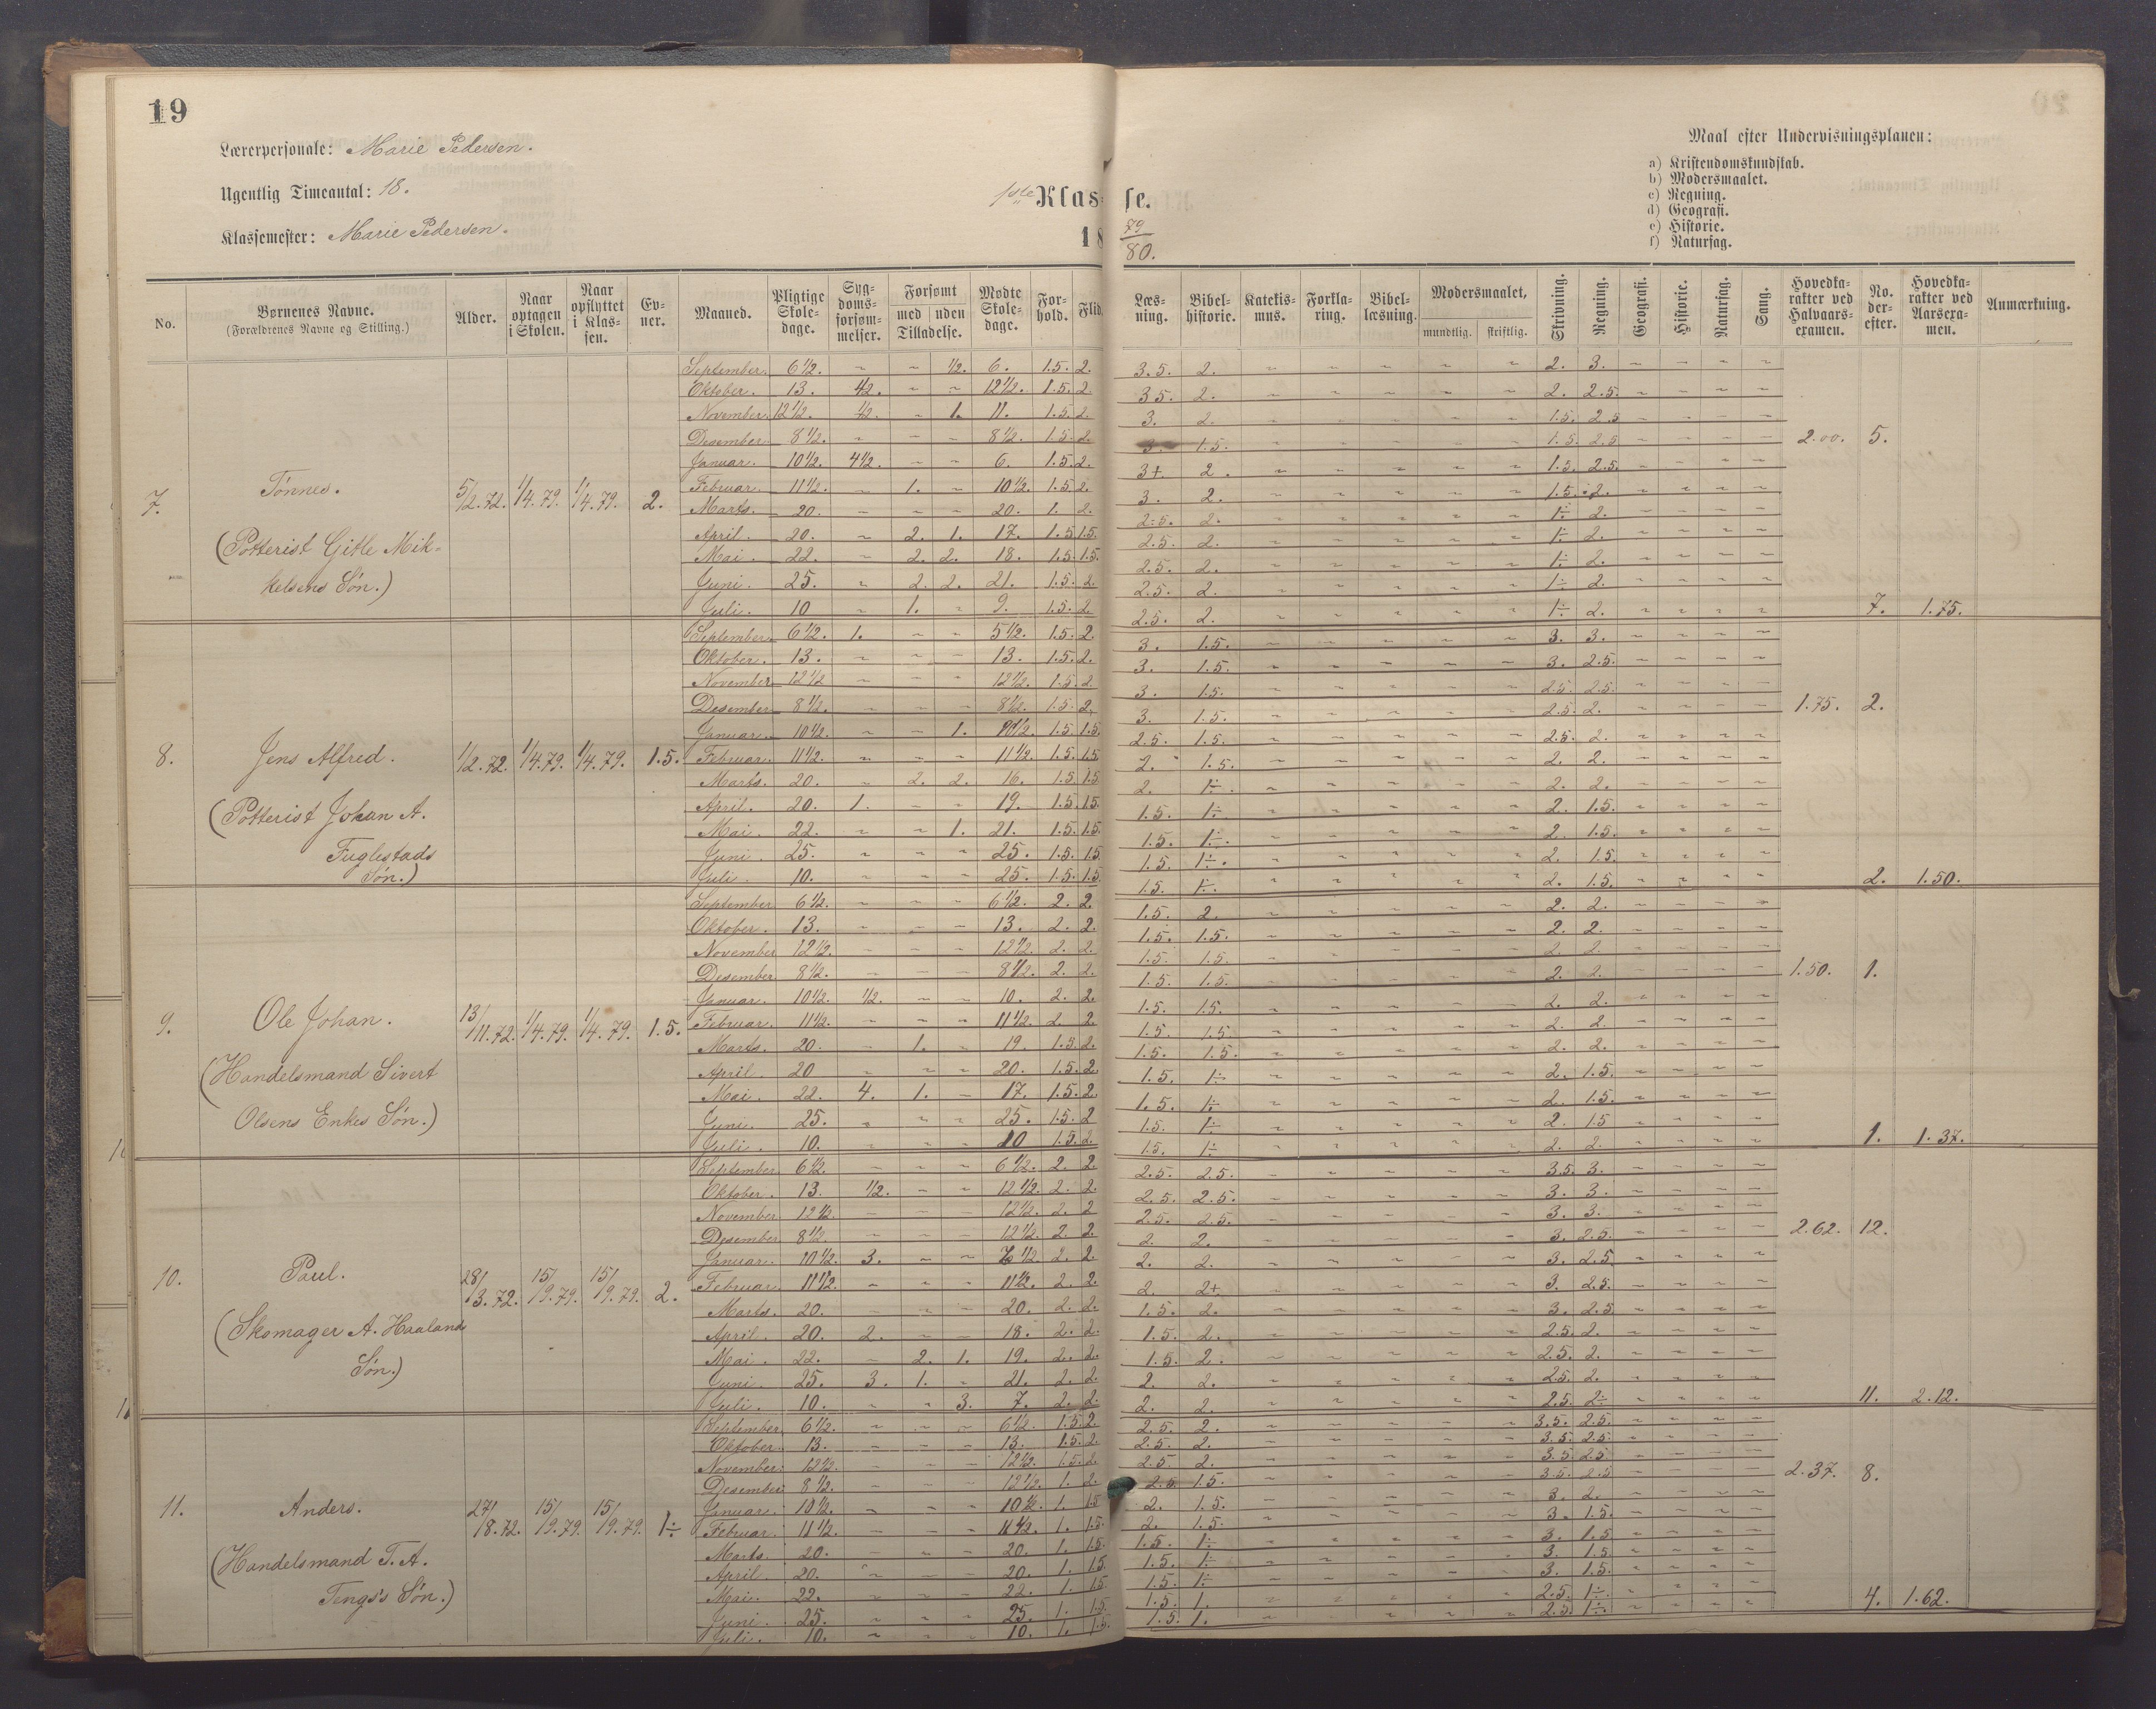 19
Lærerpersonale: Marie Pedersen.
Ugentlig Timeantal: 18.
Klassemester: Marie Pedersen.
1ste Klasse.
18 79/80.
Maal efter Undervisningsplanen:
a) Kristendomskundskab.
b) Modersmaalet.
c) Regning.
d) Geografi.
e) Historie.
f) Naturfag.
No. Børnenes Navne. (Forældrenes Navne og Stilling.) Alder. Naar optagen i Skolen. Naar opflyttet i Klassen. Evner. Maaned. Pligtige Skoledage. Sygdomsforsømmelser. Forsømt med uden Tilladelse. Mødte Skoledage. Forhold. Flid. Læsning. Bibelhistorie. Katekismus. Forklaring. Bibellæsning. Modersmaalet, mundtlig. skriftlig. Skrivning. Regning. Geografi. Historie. Naturfag. Sang. Hovedkarakter ved Halvaarsexamen. No. derefter. Hovedkarakter ved Aarsexamen. Anmærkning.
September. 6 1/2. ~ ~ 1/2. 6. 1.5. 2. 3.5. 2. ~ ~ ~ ~ ~ 2. 3. ~ ~ ~ ~
Oktober. 13. 1/2. ~ ~ 12 1/2. 1.5. 2. 3 5. 2. ~ ~ ~ ~ ~ 2. 2.5. ~ ~ ~ ~
November. 12 1/2. 1/2. ~ 1. 11. 1.5. 2. 3. 2. ~ ~ ~ ~ ~ 1.5. 2.5 ~ ~ ~ ~
Desember. 8 1/2. ~ ~ ~ 8 1/2. 1.5. 2. 3. 1.5. ~ ~ ~ ~ ~ 1.5. 2.5 ~ ~ ~ ~ 2.00. 5.
Januar. 10 1/2. 4 1/2. ~ ~ 6. 1.5. 2. 3+. 2. ~ ~ ~ ~ ~ 1.5. 2.5. ~ ~ ~ ~
7. Tønnes. 5/2.72. 1/4.79. 1/4.79. 2. Februar. 11 1/2. ~ 1. ~ 10 1/2. 1.5. 2. 3. 2. ~ ~ ~ ~ ~ 1.5. 2. ~ ~ ~ ~
Marts. 20. ~ ~ ~ 20. 1. 2. 2.5. 2. ~ ~ ~ ~ ~ 1÷ 2. ~ ~ ~ ~
(Potterist Gitle Mik-
April. 20. ~ 2. 1. 17. 1.5 1.5. 2.5. 2. ~ ~ ~ ~ ~ 1÷ 2. ~ ~ ~ ~
Mai. 22. ~ 2. 2. 18. 1.5. 1.5. 2.5. 2. ~ ~ ~ ~ ~ 1÷ 2. ~ ~ ~ ~
kelsens Søn.)
Juni. 25. ~ 2. 2. 21. 1.5. 2. 2.5. 2. ~ ~ ~ ~ ~ 1÷ 2. ~ ~ ~ ~
Juli. 10 ~ 1. ~ 9. 1.5. 2. 2.5. 2. ~ ~ ~ ~ ~ 1÷ 2. ~ ~ ~ ~ 7. 1.75.
September. 6 1/2. 1. ~ ~ 5 1/2. 1.5. 2. 3. 1.5. ~ ~ ~ ~ ~ 3. 3. ~ ~ ~ ~
Oktober. 13. ~ ~ ~ 13. 1.5. 2. 3. 1.5. ~ ~ ~ ~ ~ 3. 2.5. ~ ~ ~ ~
November 12 1/2 ~ ~ ~ 12 1/2. 1.5. 2 3. 1.5. ~ ~ ~ ~ ~ 2.5. 2.5. ~ ~ ~ ~
Desember 8 1/2. ~ ~ ~ 8 1/2. 1.5. 2. 3. 1.5. ~ ~ ~ ~ ~ 2.5. 2. ~ ~ ~ ~ 1.75. 2.
Januar. 10 1/2. ~ ~ 1. 1/2. 1.5. 1.5. 2.5. 1.5. ~ ~ ~ ~ ~ 2.5. 2. ~ ~ ~ ~
8. Jens Alfred. 1/2.72. 1/4.79. 1/4.79. 1.5. Februar. 11 1/2. ~ ~ ~ 11 1/2. 1.5. 1.5 2. 1.5. ~ ~ ~ ~ ~ 2. 2. ~ ~ ~ ~
Marts. 20. ~ 2. 2. 16. 1.5 1.5 2. 1÷. ~ ~ ~ ~ ~ 2. 2. ~ ~ ~ ~
(Potterist Johan A.
April. 20. 1. ~ ~ 19. 1.5. 1.5. 1.5. 1÷ ~ ~ ~ ~ ~ 2. 1.5. ~ ~ ~ ~
Mai. 22. ~ ~ 1. 21. 1.5. 1.5. 1.5. 1÷. ~ ~ ~ ~ ~ 2. 1.5. ~ ~ ~ ~
Fuglestads
Juni. 25. ~ ~ ~ 25. 1.5. 1.5. 1.5. 1÷. ~ ~ ~ ~ ~ 2. 1.5. ~ ~ ~ ~
Søn.)
Juli. 10. ~ ~ ~ 25. 1.5. 1.5. 1.5. 1÷. ~ ~ ~ ~ ~ 2. 1.5. ~ ~ ~ ~ 2. 1.50.
September 6 1/2. ~ ~ ~ 6 1/2. 2. 2. 1.5. 2. ~ ~ ~ ~ ~ 2. 2. ~ ~ ~ ~
Oktober. 13. ~ ~ ~ 13. 2. 2. 1.5. 1.5. ~ ~ ~ ~ ~ 2. 2. ~ ~ ~ ~
November 12 1/2. ~ ~ ~ 12 1/2. 2. 2. 1.5. 1.5. ~ ~ ~ ~ ~ 2. 2. ~ ~ ~ ~
Desember 8 1/2. ~ ~ ~ 8 1/2. 2. 2. 1.5. 1.5. ~ ~ ~ ~ ~ 2. 2. ~ ~ ~ ~ 1.50. 1.
Januar. 10 1/2. 1/2. ~ ~ 10. 2. 2. 1.5. 1.5. ~ ~ ~ ~ ~ 2. 2. ~ ~ ~ ~
9. Ole Johan. 13/11.72. 1/4.79. 1/4.79. 1.5. Februar. 11 1/2. ~ ~ ~ 11 1/2. 2. 2. 1.5. 1.5. ~ ~ ~ ~ ~ 2. 2. ~ ~ ~ ~
Marts. 20. ~ 1. ~ 19. 1.5. 2. 1.5. 1.5. ~ ~ ~ ~ ~ 2. 2. ~ ~ ~ ~
(Handelsmand Sivert
April. 20 ~ ~ ~ 20. 1.5. 2. 1.5. 1÷ ~ ~ ~ ~ ~ 2. 1.5. ~ ~ ~ ~
Mai. 22. 4. 1. ~ 17. 1.5. 2. 1.5. 1÷. ~ ~ ~ ~ ~ 2. 1.5. ~ ~ ~ ~
Olsens Enkes Søn.)
Juni. 25. ~ ~ ~ 25. 1.5. 2 1.5. 1÷ ~ ~ ~ ~ ~ 2. 1.5 ~ ~ ~ ~
Juli. 10. ~ ~ ~ 10 1.5. 2. 1.5. 1÷ ~ ~ ~ ~ ~ 2. 2. ~ ~ ~ ~ 1. 1.37.
September 6 1/2. ~ ~ ~ 6 1/2. 2. 2. 2.5. 2.5. ~ ~ ~ ~ ~ 3.5. 3. ~ ~ ~ ~
Oktober. 13. 1/2. ~ ~ 12 1/2. 2. 2. 2.5. 2.5. ~ ~ ~ ~ ~ 3. 3. ~ ~ ~ ~
November 12 1/2. ~ ~ ~ 12 1/2. 2. 2 2.5. 2.5. ~ ~ ~ ~ ~ 3. 3. ~ ~ ~ ~
Desember 8 1/2. ~ ~ ~ 12 1/2. 2. 2. 2. 2. ~ ~ ~ ~ ~ 3. 2.5. ~ ~ ~ ~ 2.62. 12.
Januar. 10 1/2. 3. ~ ~ 7 1/2. 2. 2. 2. 2. ~ ~ ~ ~ ~ 3. 2.5. ~ ~ ~ ~
10. Paul. 28/3.72. 15/9.79. 15/9.79. 2. Februar. 11 1/2. ~ ~ ~ 11 1/2. 2. 2. 2. 2+. ~ ~ ~ ~ ~ 3. 2.5. ~ ~ ~ ~
Marts. 20. ~ ~ ~ 20. 2. 2. 1.5. 2. ~ ~ ~ ~ ~ 3. 2.5 ~ ~ ~ ~
(Skomager A. Haalands
April. 20. 2. ~ ~ 18. 2. 2. 1.5. 2. ~ ~ ~ ~ ~ 2.5. 2. ~ ~ ~ ~
Mai. 22. ~ 2. 1. 19. 2. 2. 1.5. 2. ~ ~ ~ ~ ~ 2.5. 2. ~ ~ ~ ~
Søn.)
Juni. 25. 3. 1. ~ 21. 2. 2. 2. 2. ~ ~ ~ ~ ~ 2.5. 2. ~ ~ ~ ~
Juli. 10. ~ ~ 3. 7. 2. 2. 2. 2. ~ ~ ~ ~ ~ 2.5. 2÷ ~ ~ ~ ~ 11. 2.12.
September 6 1/2. ~ ~ ~ 6 1/2. 1.5. 2. 2.5. 2. ~ ~ ~ ~ ~ 3.5. 2.5. ~ ~ ~ ~
Oktober. 13. ~ ~ ~ 13. 1.5. 2. 2.5. 2. ~ ~ ~ ~ ~ 3.5. 2.5. ~ ~ ~ ~
November. 12 1/2. ~ ~ ~ 12 1/2. 1.5. 2. 2.5 2. ~ ~ ~ ~ ~ 3.5 2.5 ~ ~ ~ ~
Desember. 8 1/2. ~ ~ ~ 12 1/2. 1. 2. 2.5. 1.5. ~ ~ ~ ~ ~ 3.5. 2.5 ~ ~ ~ ~ 2.37. 8.
Januar. 10 1/2. ~ ~ ~ 10 1/2. 1. 1.5 2. 1.5. ~ ~ ~ ~ ~ 3. 2. ~ ~ ~ ~
11. Anders. 27/8.72. 15/9.79. 15/9.79. 1÷ Februar. 11 1/2. ~ ~ ~ 11 1/2. 1. 1.5. 2. 1.5. ~ ~ ~ ~ ~ 3. 1.5. ~ ~ ~ ~
Marts. 20. ~ ~ ~ 20. 1. 1.5. 1.5. 1÷ ~ ~ ~ ~ ~ 3. 1.5 ~ ~ ~ ~
(Handelsmand T. A.
April. 20. ~ ~ ~ 20. 1. 1.5. 1.5. 1÷ ~ ~ ~ ~ ~ 3. 1.5. ~ ~ ~ ~
Mai. 22. ~ ~ ~ 22. 1. 1.5 1.5. 1÷ ~ ~ ~ ~ ~ 3. 1.5. ~ ~ ~ ~
Tengs's Søn.)
Juni. 25. ~ ~ ~ 25. 1. 1.5. 1.5. 1. ~ ~ ~ ~ ~ 2.5. 1÷ ~ ~ ~ ~
Juli. 10. ~ ~ ~ 10. 1. 1.5. 1.5. 1. ~ ~ ~ ~ 2.5. 1÷. ~ ~ ~ ~ 4. 1.62.